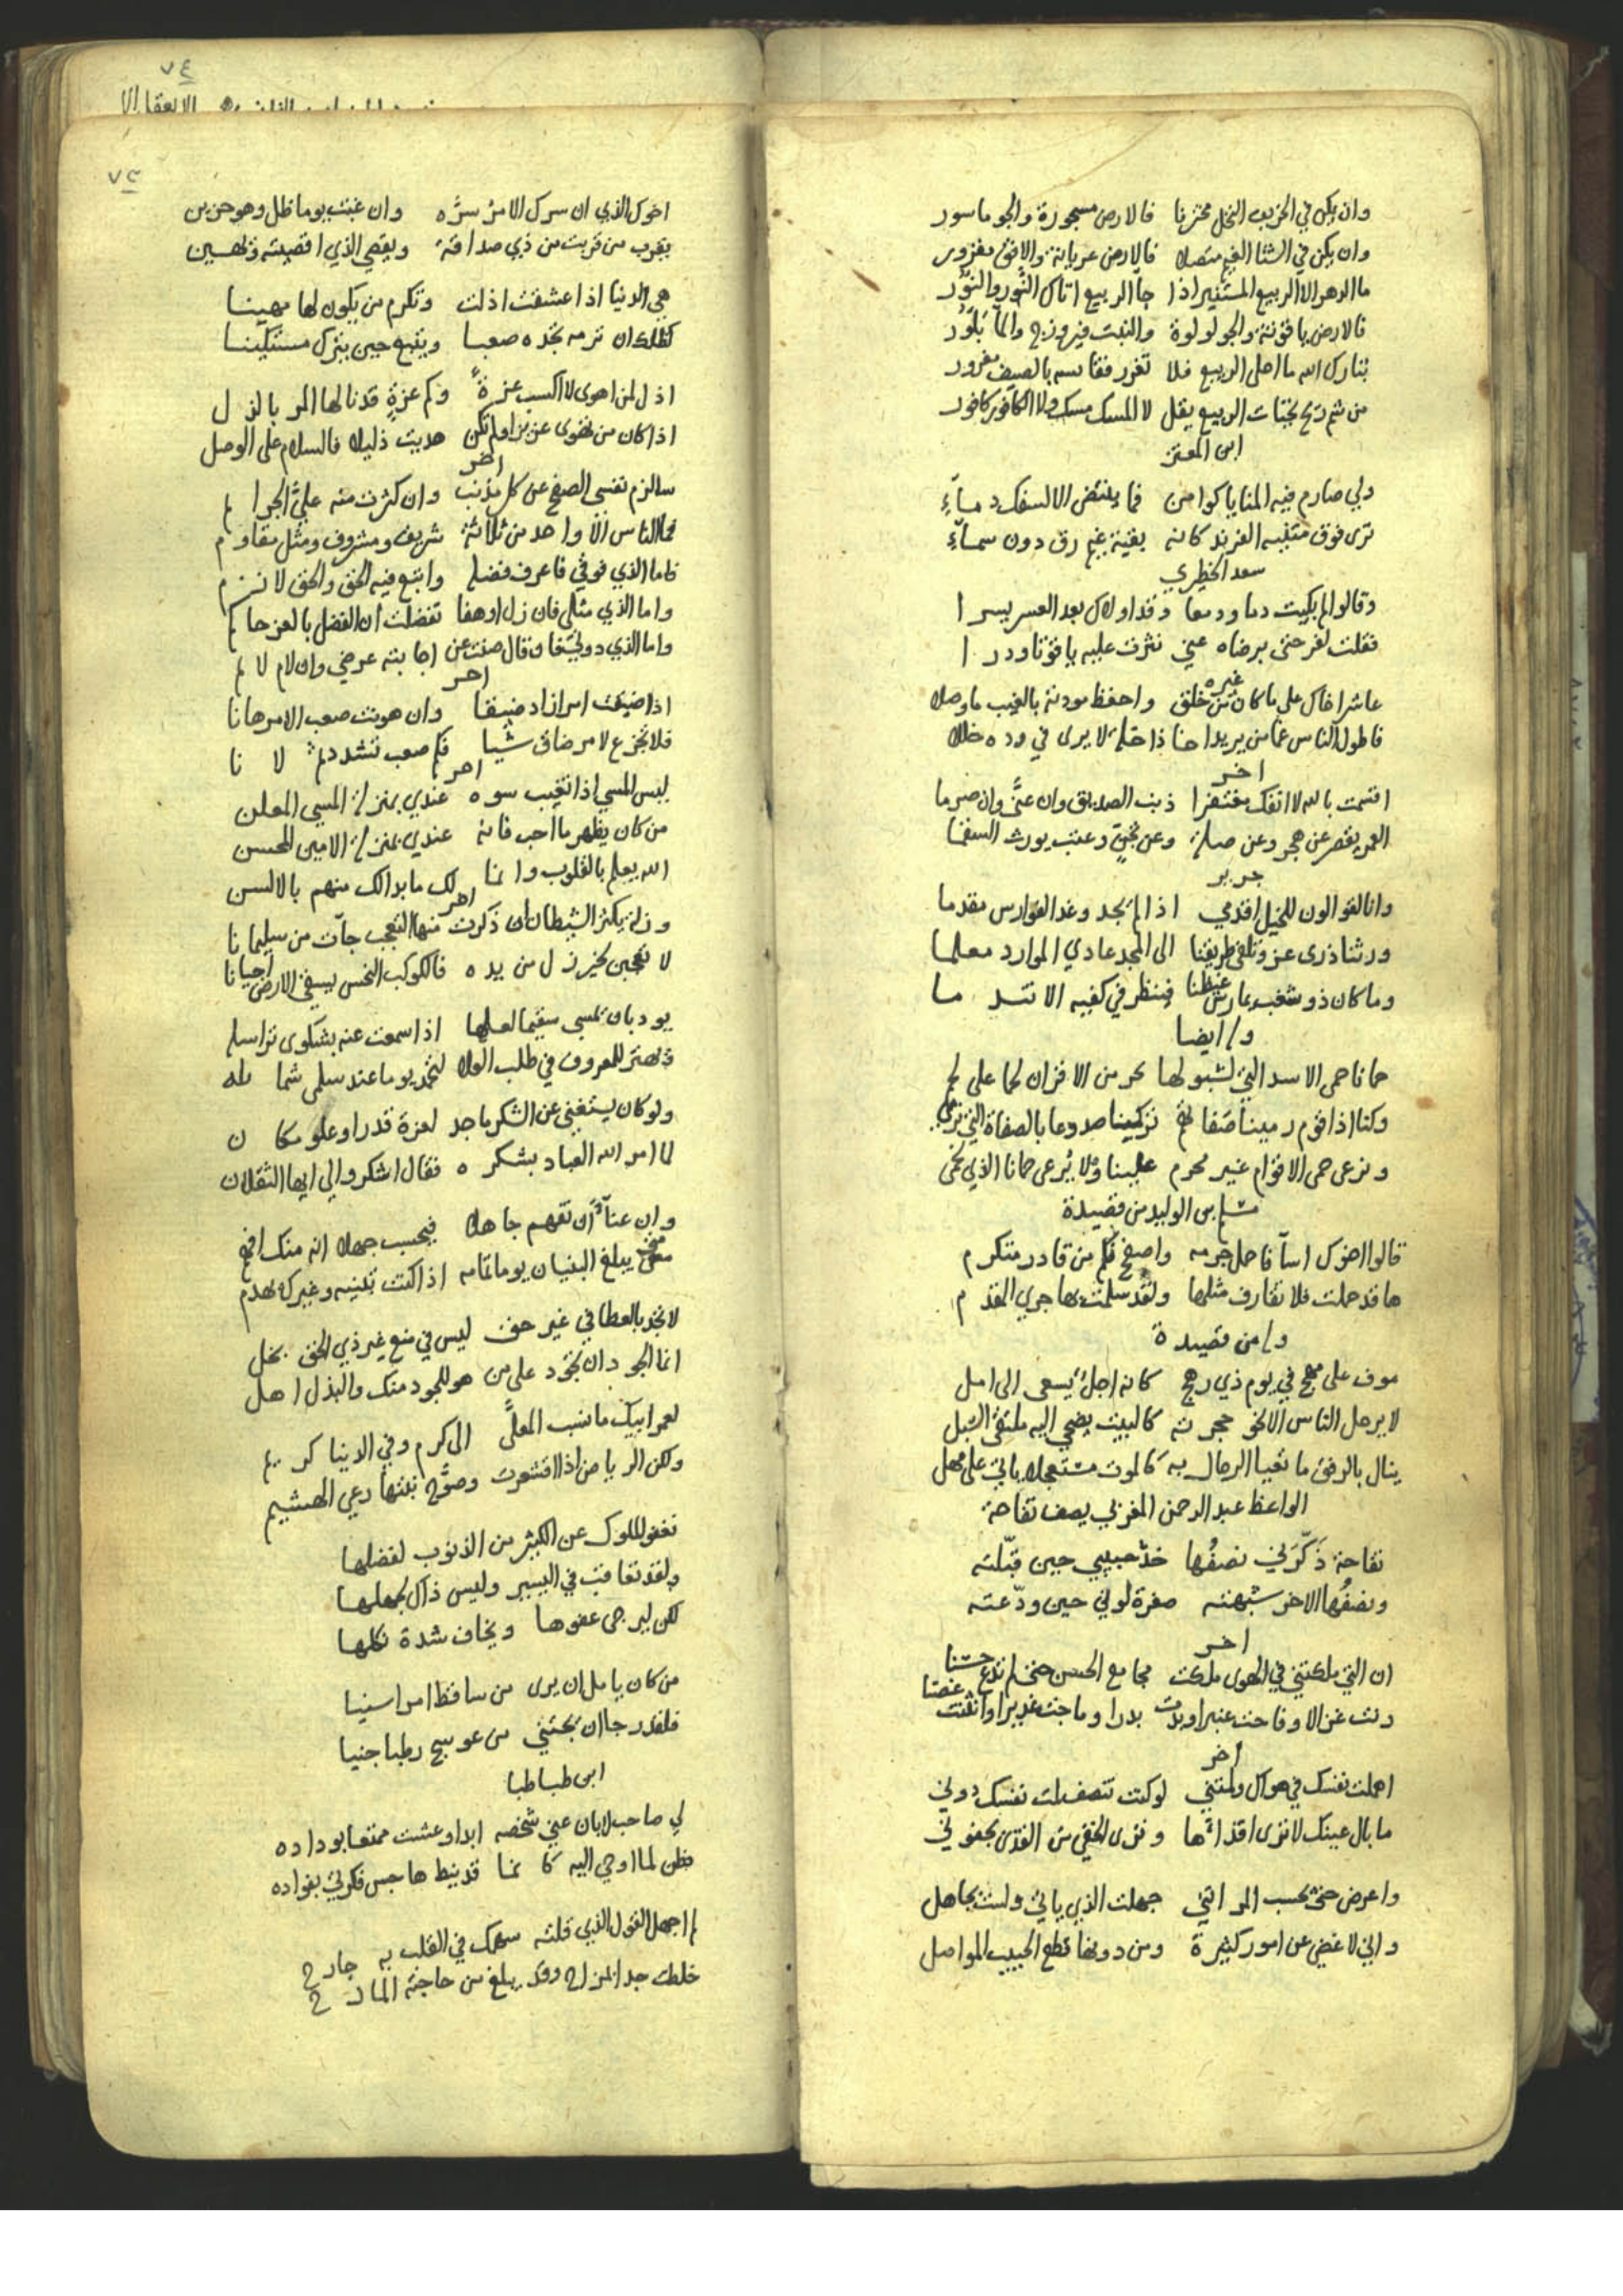 وان يكن في الخريف النخل مخترفا فالارض مسجورة والجو ماسور
وان يكن في الشتا الغيم متصلا فالارض عريانة والافق مقرور
ما الدهر الا الربيع المستنير اذا جا الربيع اتاك النَّور والنُّور
فالارض ياقوتة والجو لولوة والنبت فيروزج والما بَلّور
تبارك الله ما احلى الربيع فلا تغرر فقايسه بالصيف مغرور
من شم ريح تحيات الربيع يقل لا المسك مسك ولا الكافور كافور
ابن المعتز
ولي صارم فيه المنايا كوامن فما ينتضى الا لسفك دماءِ
ترى فوق متنيه الفرند كانه بقية غيم رق دون سماءِ
سعد الحظيري
وقالوا لم بكيت دما ودمعا وقد اولاك بعد العسر يسرا
فقلت لفرحتي برضاه عني نثرت عليه ياقوتا ودرا
غيره
عاشر اخاك على ما كان من خلق واحفظ مودته بالغيب ما وصلا
فاطول الناس غما من يريد اخا ذا خلة لا يرى في وده خللا
اخر
اقسمت بالله لا انفك مغتفرا ذنب الصديق وان عقَّ وان صرما
العمر يقصر عن هجر وعن صلة وعن تجنٍّ وعتب يورث السقما
جرير
وانا لقوالون للخيل اقدمي اذا لم يجد وغد الفوارس مقدما
ورثنا ذرى عز وتلقى طريقنا الى المجد عادي الموارد معلما
وما كان ذو شغب يمارس عيصنا فينظر في كفيه الا تندما
وله ايضا
حمانا حمى الاسد التي لشبولها تحر من الاقران لحما على لحم
وكنا اذا قوم رمينا صفاتهم تركنا صدوعا بالصفاة التي نرمي
ونرعى حمى الاقوام غير محرم علينا ولا يُرعى حمانا الذي نحمي
مسلم بن الوليد من قصيدة
قالوا اخوك اسآ فاحمل جرمه واصفح فكم من قادر متكرم
ها قد حملت فلا تقارف مثلها ولقد سلمت بها جري المقدم
وله من قصيدة
موف على مهج في يوم ذي رهج كانه اجل يسعى الى امل
لا يرحل الناس الا نحو حجرته كالبيت يضحي اليه ملتقى السُّبل
ينال بالرفق ما تعيا الرجال به كالموت مستعجلا ياتي على مهل
الواعظ عبد الرحمن المغربي يصف تفاحة
تفاحة ذَكّرَني نصفُها خدَّ حبيبي حين قبّلته
ونصفُها الاخر شبهته صفرة لوني حين ودّعته
اخر
ان التي ملكتني في الهوى ملكت مجامع الحسن حتى لم تدع حسنا
رنت غزالا وفاحت عنبرا وبدت بدرا وماجت غديرا وانثنت غصنا
اخر
اهملت نفسك في هواك ولمتني لو كنت تنصف لمت نفسك دوني
ما بال عينك لا ترى اقذاءها وترى الخفي من القذى بجفوني
واعرض حتى يحسب المر انني جهلت الذي ياتي ولست بجاهل
واني لاغضي عن امور كثيرة ومن دونها قطع الحبيب المواصل
٧٤
٧٣
اخوك الذي ان سرك الامرُ سرَّه وان غبت يوما ظل وهو حزين
يقرب من قربت من ذي صداقة ويقصي الذي اقصيته وتهين
هي الدنيا اذا عشقت اذلت وتكرم من يكون لها مهينا
كظلك ان ترمه تجده صعبا ويتبع حين يترك مستكينا
اذل لمن اهوى لاكسب عزةً وكم عزةٍ قد نالها المر بالذل
اذا كان من تهوى عزيزا ولم تكن هديت ذليلا فالسلام على الوصل
اخر
سالزم نفسي الصفح عن كل مذنب وان كثرت منه عليَّ الجرايم
فما الناس الا واحد من ثلاثة شريف ومشروف ومثل مقاوم
فاما الذي فوقي فاعرف فضله واتبع فيه الحق والحق لازم
واما الذي مثلي فان زل او هفا تفضلت ان الفضل بالعز حاكم
واما الذي دوني فان قال صنت عن اجابته عرضي وان لام لايم
اخر
اذا ضيقت امرا زاد ضيقا وان هونت صعب الامر هانا
فلا تجزع لامر ضاق شيا فكم صعب تشدد ثم لانا
اخر
ليس المسي اذا تغيب سوه عندي بمنزلة المسي المعلن
من كان يظهر ما احب فانه عندي بمنزلة الامين المحسن
الله يعلم بالقلوب وانما لك ما بدا لك منهم بالالسن
اخر
وزلة يكثر الشيطان ان ذكرت منها التعجب جآت من سليمانا
لا تعجبن لخير زل من يده فالكوكب النحس يسقي الارض احيانا
يود بان يمسي سقيما لعلها اذا سمعت عنه بشكوى تراسله
ويهتز للمعروف في طلب العلا لتحمد يوما عند سلمى شمايله
ولو كان يستغني عن الشكر ماجد لعزة قدر او علو مكان
لما امر الله العباد بشكره فقال اشكروا لي ايها الثقلان
وان عنآءً ان تفهم جاهلا فيحسب جهلا انه منك افهم
متى يبلغ البنيان يوما تمامه اذا كنت تبنيه وغيرك يهدم
لا تجد بالعطا في غير حق ليس في منع غير ذي الحق بخل
انما الجود ان تجود على من هو للجود منك والبذل اهل
لعمر ابيك ما نسب المعلَّى الى كرم وفي الدنيا كريم
ولكن الرياض اذا اقشعرت وصوَّح نبتها رعي الهشيم
تعفو الملوك عن الكثير من الذنوب لفضلها
ولقد تعاقب في اليسير وليس ذاك لجهلها
لكن ليرجى عفوها ويخاف شدة نكلها
من كان يامل ان يرى من ساقط امرا سنيا
فلقد رجا ان يجتني من عوسج رطبا جنيا
ابن طباطبا
لي صاحب لا بان عني شخصه ابدا وعشت ممتعا بوداده
فطن لما اوحي اليه كانما قد نيط هاجس فكرتي بفواده
لم اجهل القول الذي قلته سهمك في القلب به جارح
خلطت جدا بمزاح وقد يبلغ من حاجته المازح